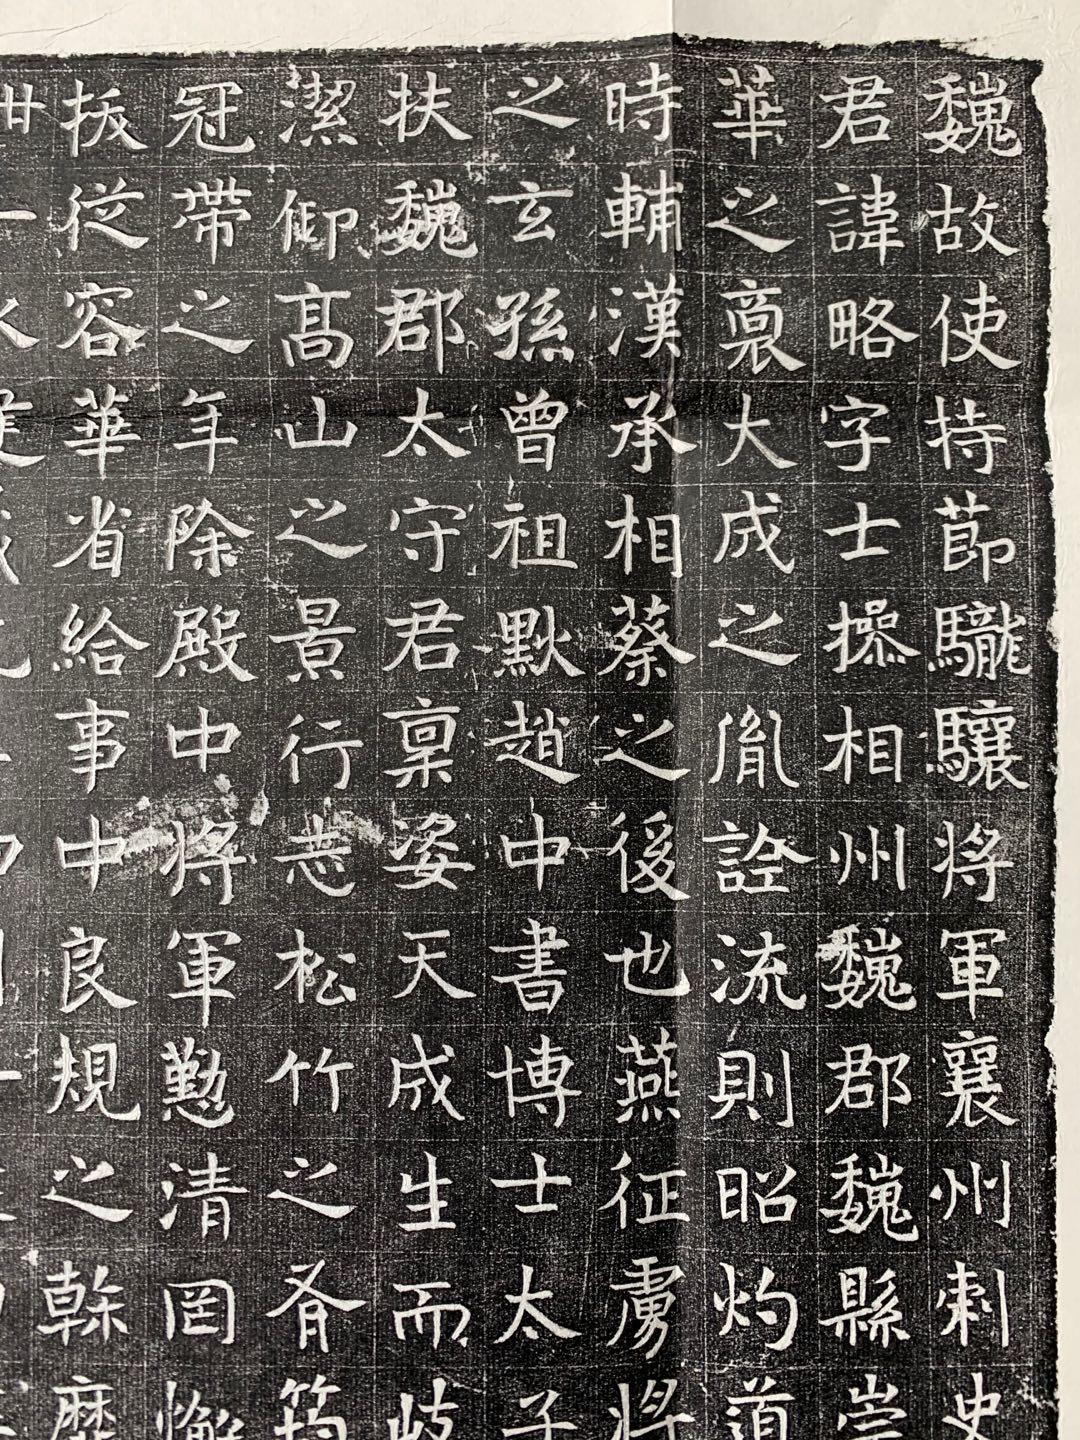 魏故使持莭驡驤將軍襄州刾史
君諱略字士操相州魏郡魏縣崇
華之裏大成之胤詮流則昭灼道
時輔漢承相蔡之後也燕征虜將
之玄孫曾祖默趙中書博士太子
扶魏郡太守君稟姿天成生而岐
潔仰髙山之景行志松竹之有筠
冠帶之年除殿中將軍懃清罔懈
拔從容華省給事中良規之幹靡